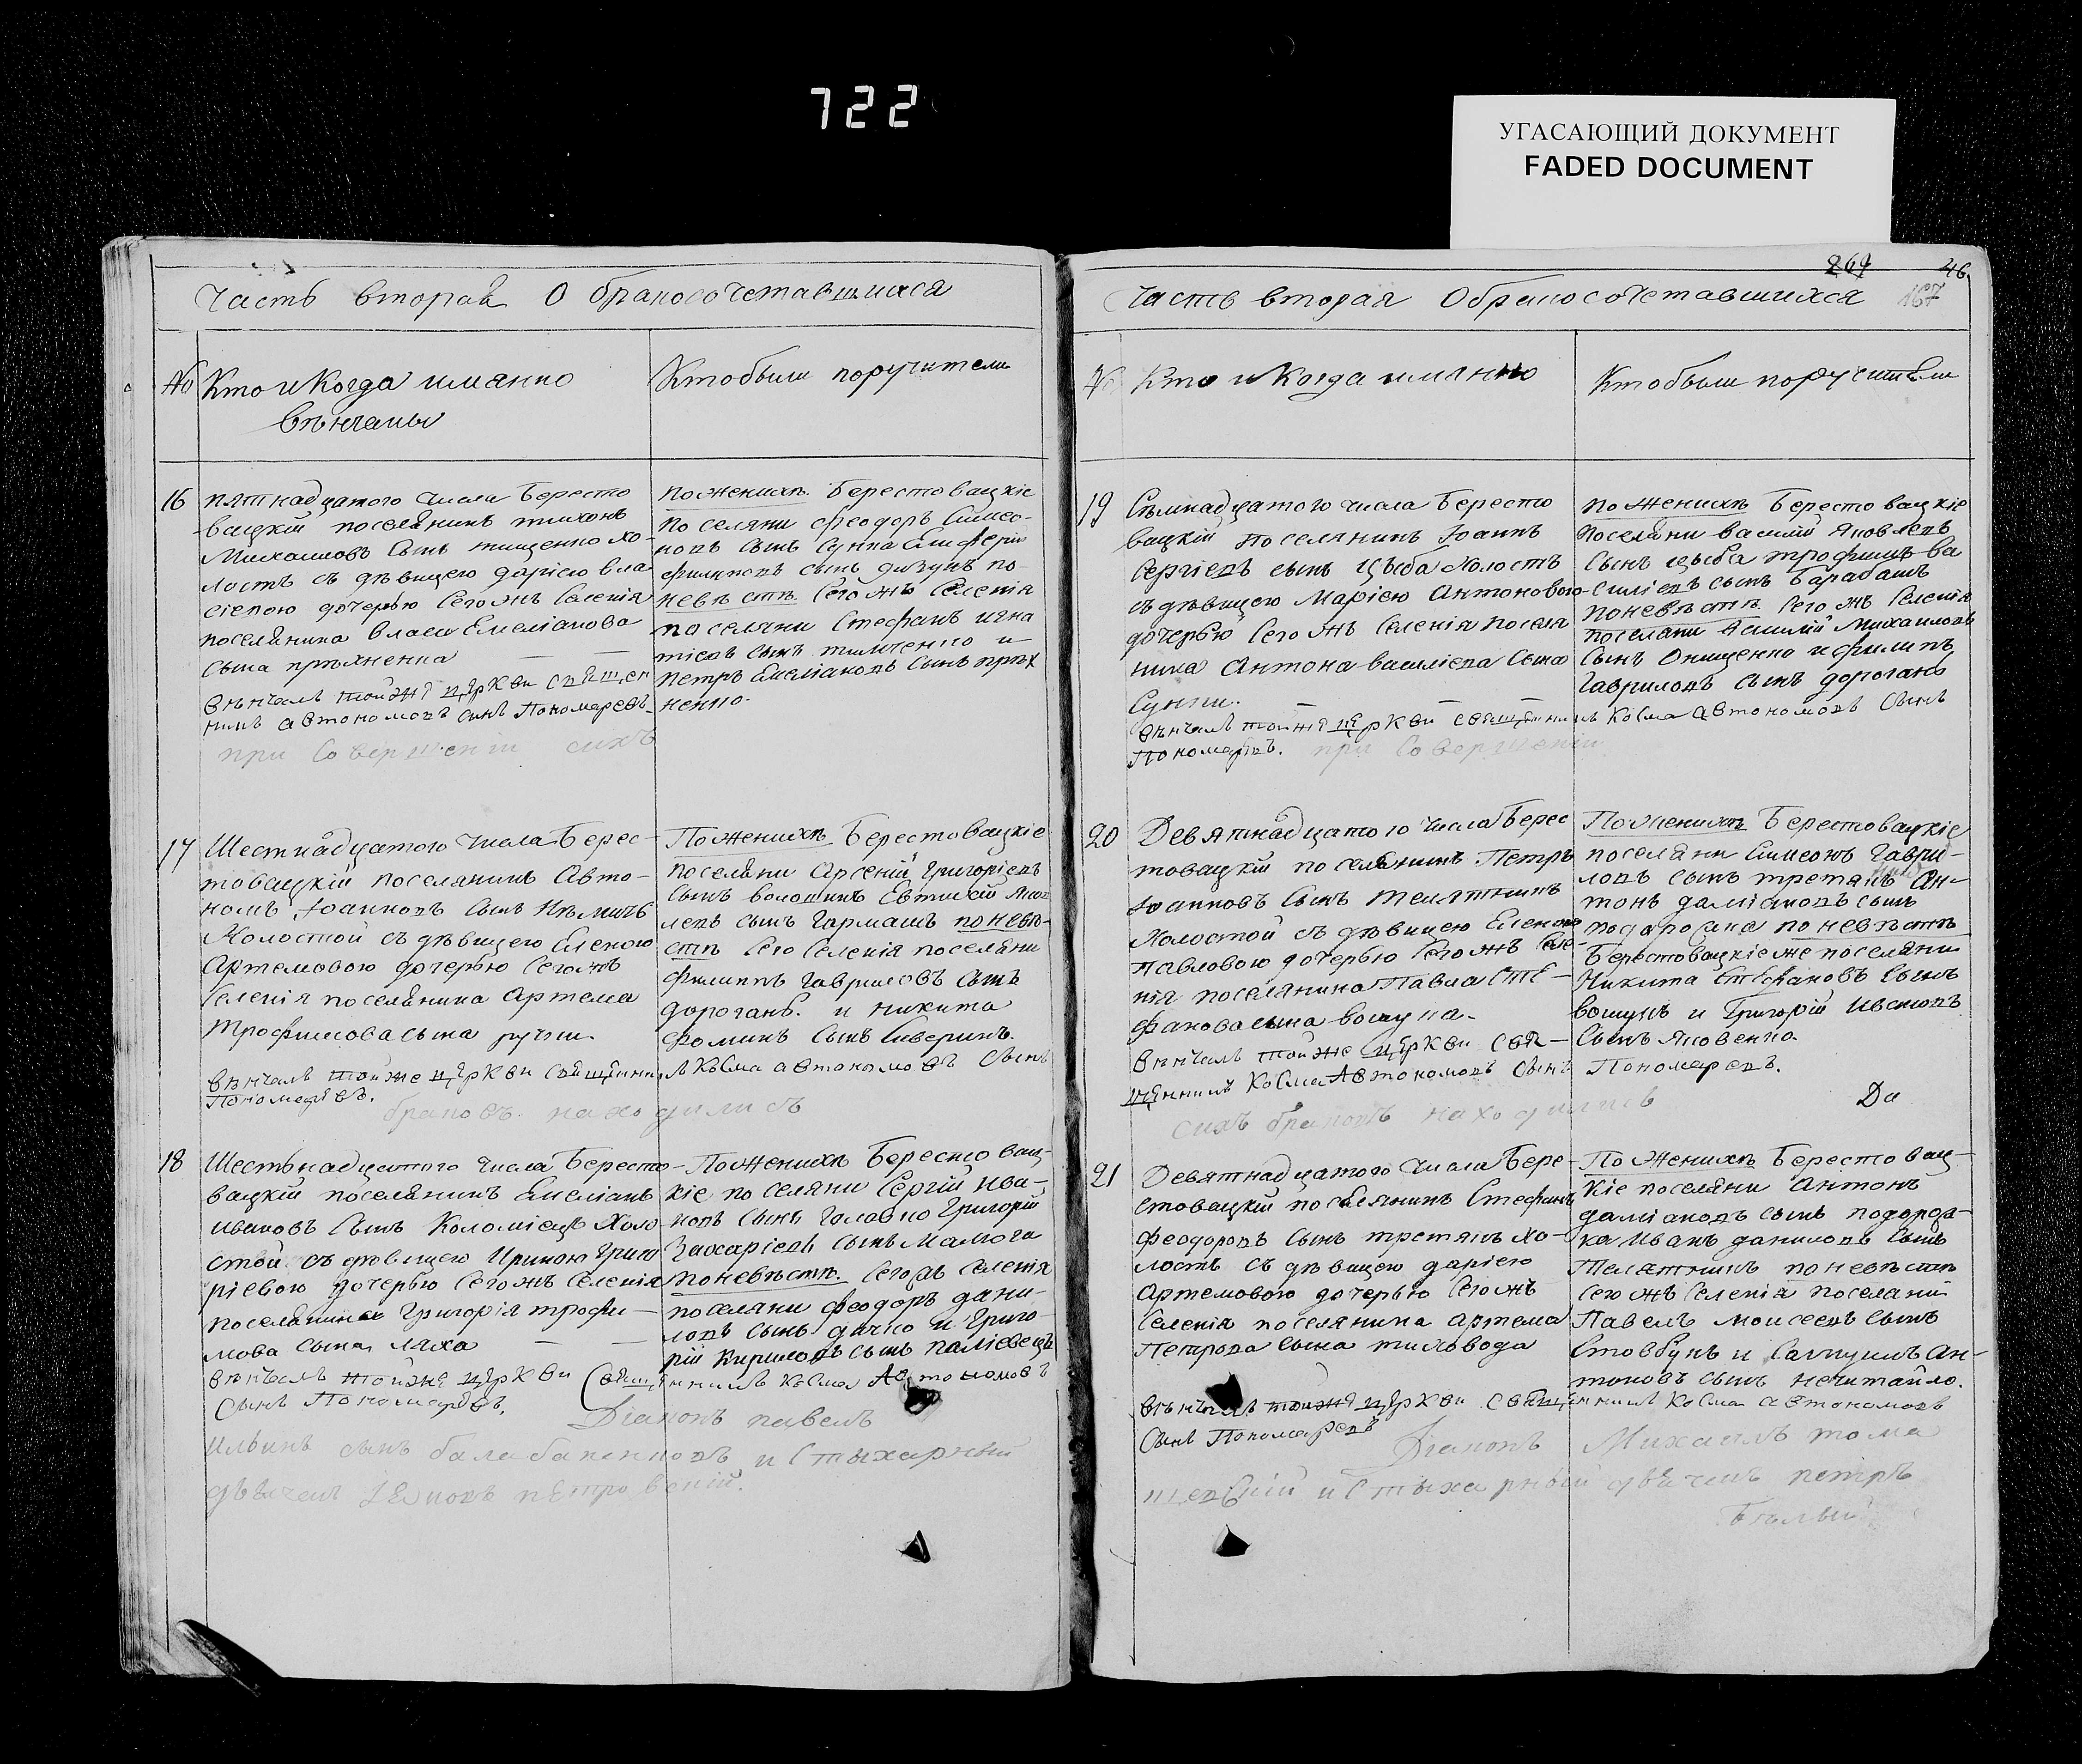 722
УГАСАЮЩИЙ ДОКУМЕНТ
FADED DOCUMENT
Часть вторая О бракосочетавшихся
№ Кто и Когда имянно
вѣнчаны
Кто были поручители
16 пятнадцатого числа Бересто
вацкій поселянинъ тихонъ
Михаиловъ сынъ тищенко хо-
лостъ съ дѣвицею даріею вла
сіевою дочерью Сегожъ Селенія
поселянина власа Емеліанова
сына пряхненка
вѣнчалъ тойже церкви священ
никъ автономовъ сынъ Пономаревъ
при Совершеніи сихъ
по женихѣ. Берестовацкіе
поселяни феодоръ Симео-
новъ сынъ Сунка
филиповъ сынъ по-
невѣстѣ. Сегожъ Селенія
поселяни Стефанъ игна
тіевъ сынъ тимченко и
петръ Емеліановъ сынъ прях
ненко.
17 Шестнадцатого числа Берес-
товацкій поселянинъ Авто-
номъ Іоанновъ сынъ Нѣмичъ
Холостой съ дѣвицею Еленою
Артемовою дочерью Сегожъ
Селенія поселянина Артема
Трофимова сына ручки
вѣнчалъ тойже церкви священникъ Косма автономовъ сынъ
Пономаревъ.
браковъ находились
По женихѣ Берестовацкіе
поселяни Арсеній Григоріевъ
сынъ волошинъ Евтихій Яков
левъ сынъ Гармашъ по невѣ-
стѣ Сего Селенія поселяни
Филиппъ Гавриловъ сынъ
дороганъ. и никита
фоминъ сынъ Сиверинъ.
18 Шестьнадцатого числа Бересто-
вацкій поселянинъ Емеліанъ
ивановъ сынъ Коломіецъ Холо
стой съ дѣвицею Ириною Григо
ріевою дочерью Сегожъ Селенія
поселянина Григорія трофи-
мова сына ляха
вѣнчалъ тойже церкви Священникъ Косма Автономовъ
сынъ Пономаревъ.
Діаконъ павелъ
Ильинъ сынъ балабаненковъ и Стыхарный
дьячекъ
По женихѣ Берестовац-
кіе поселяни Сергій ива-
новъ сынъ Головко Григорій
Захаріевъ сынъ Малюга
поневѣстѣ. Сегожъ Селенія
поселяни феодоръ дани-
ловъ сынъ дячко и Григо-
рій Кириловъ сынъ паліевецъ
269 46
167
Часть вторая О бракосочетавшихся
№ Кто и Когда имянно
Кто были поручители
19 Семнадцатого числа Бересто
вацкій поселянинъ Іоаннъ
Сергіевъ сынъ Цыба Холостъ
съ дѣвицею Маріею Антоновою
дочерью Сегожъ Селенія поселя
нина Антона василіева сына
Сунки.
вѣнчалъ тойже церкви священникъ Косма автономовъ сынъ
Пономаревъ. при Совершеніи
по женихѣ Берестовацкіе
поселяни василій Яковлевъ
сынъ цыба трофимъ ва
силіевъ сынъ Барабашъ
поневѣстѣ. Сегожъ Селенія
поселяни василій Михаиловъ
сынъ Онищенко и филипъ
Гавриловъ сынъ дороганъ
20 Девятнадцатого числа Берес
товацкій поселянинъ Петръ
Іоанновъ сынъ Телятникъ
Холостой съ дѣвицею Еленою
павловою дочерью Сегожъ Селе-
нія поселянина Павла Сте-
фанова сына вошуна.
вѣнчалъ тойже церкви свя-
щенникъ Косма Автономовъ сынъ Пономаревъ.
сихъ браковъ находились
По женихѣ Берестовацкіе
поселяни Симеонъ Гаври-
ловъ сынъ третякъ Ан-
тонъ даміановъ сынъ
по невѣстѣ
Берестовацкіеже поселяни
Никита Стефановъ сынъ
вошунъ и Григорій Ивановъ
сынъ Яковенко.
Да
21 Девятнадцатого числа Бере-
стовацкій поселянинъ Стефанъ
феодоровъ сынъ третякъ хо-
лостъ съ дѣвицею даріею
Артемовою дочерью Сегожъ
Селенія поселянина Артема
Петрова сына тиховода
вѣнчалъ тойже церкви священникъ Косма автономовъ
сынъ Пономаревъ
Діаконъ Михаилъ тома
щевскій и Стыхарный дьячекъ петръ
Бѣлый
По женихѣ Берестовац-
кіе поселяни Антонъ
даміановъ сынъ
Иванъ даниловъ сынъ
Телятникъ поневѣстѣ
Сегожъ Селенія поселяни
Павелъ моисеевъ сынъ
Стовбунъ и Самуилъ Ан-
тоновъ сынъ нечитайло.